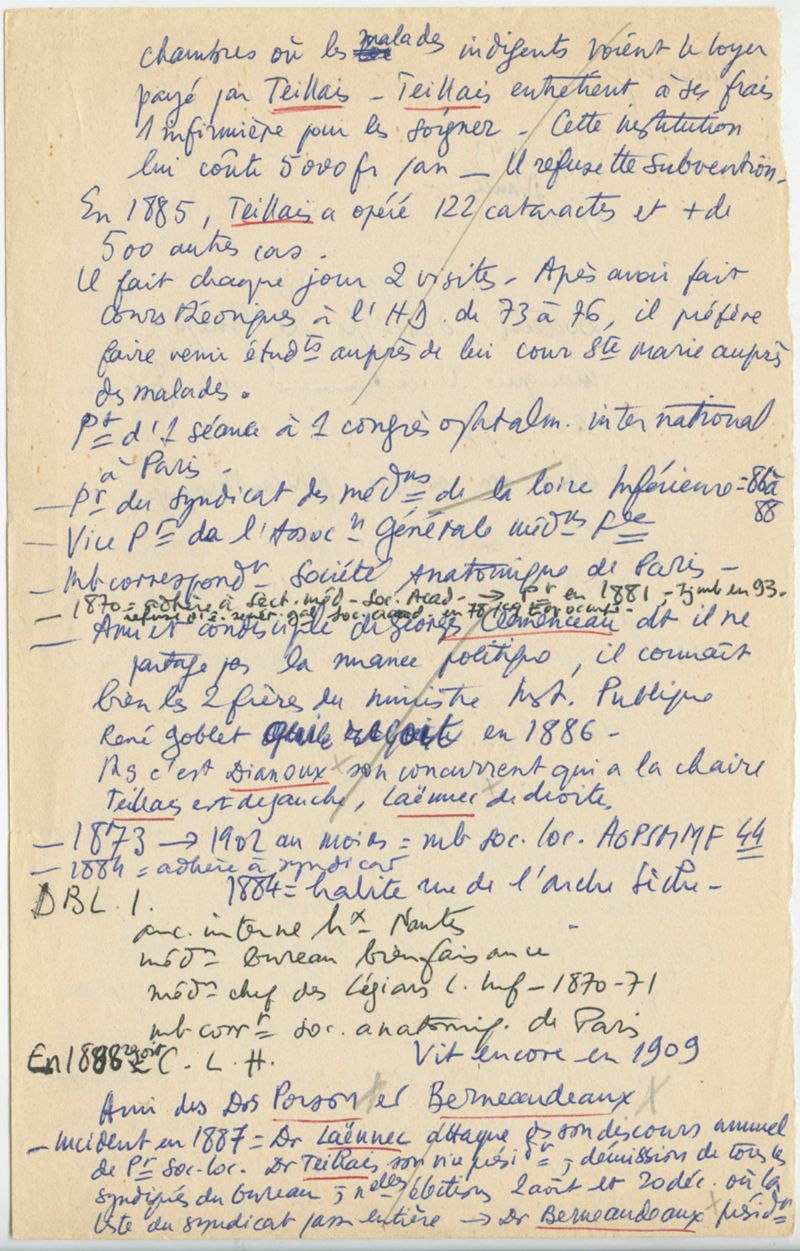 chambres où les malades indigents voient le loyer
payé par Teillais - Teillais entretient à ses frais
1 infirmière pour les soigner - Cette institution
lui coûte 5000 fr / an - Il refuse tte subvention -
En 1885, Teillais a opéré 122 cataractes et + de
500 autres cas.
Il fait chaque jour 2 visites - Après avoir fait
cours théoriques à l'HD. de 73 à 76, il préfère
faire venir étudts auprès de lui cour Ste Marie auprès
des malades.
Pt d'1 séance à 1 congrès ophtalm. international
à Paris -
- Pr du syndicat des médns de la Loire Inférieure = 86 à 88
- Vice Pr de l'Assocn Générale médns Fce
- mb correspondt Société Anatomique de Paris -
- 1870 = adhère à Sect. méd - Soc. Acad - → Pt en 1881, tj mb en 93 -
refuse d'ê. secrét. gal soc. acad en 78 car trop occupé -
- Ami et condisciple de Georges Clemenceau dt il ne
partage pas la nuance politique, il connaît
bien les 2 frères du ministre Inst. Publique
René Goblet en 1886 -
Ms c'est Dianoux son concurrent qui a la chaire
Teillais est de gauche, Laënnec de droite,
- 1873 → 1902 au moins = mb soc. loc. AGPSMMF 44
- 1884 = adhère à syndicat
1884 = habite rue de l'arche sèche -
DBL. 1.
anc. interne hx Nantes
médn bureau bienfaisance
médn chef des Légions L. Inf - 1870-71
mb corrt soc. anatomiq. de Paris
En 1888 reçoit C. L. H. Vit encore en 1909
Ami des Drs Poisson et Berneaudeaux
- Incident en 1887 = Dr Laënnec attaque ds son discours annuel
de Pr Soc. loc. Dr Teillais son vice présidt ; démission de tous les
syndiqués du bureau ; nelles élections 2 août et 20 déc. où la
liste du syndicat passe entière → Dr Berneaudeaux présidt